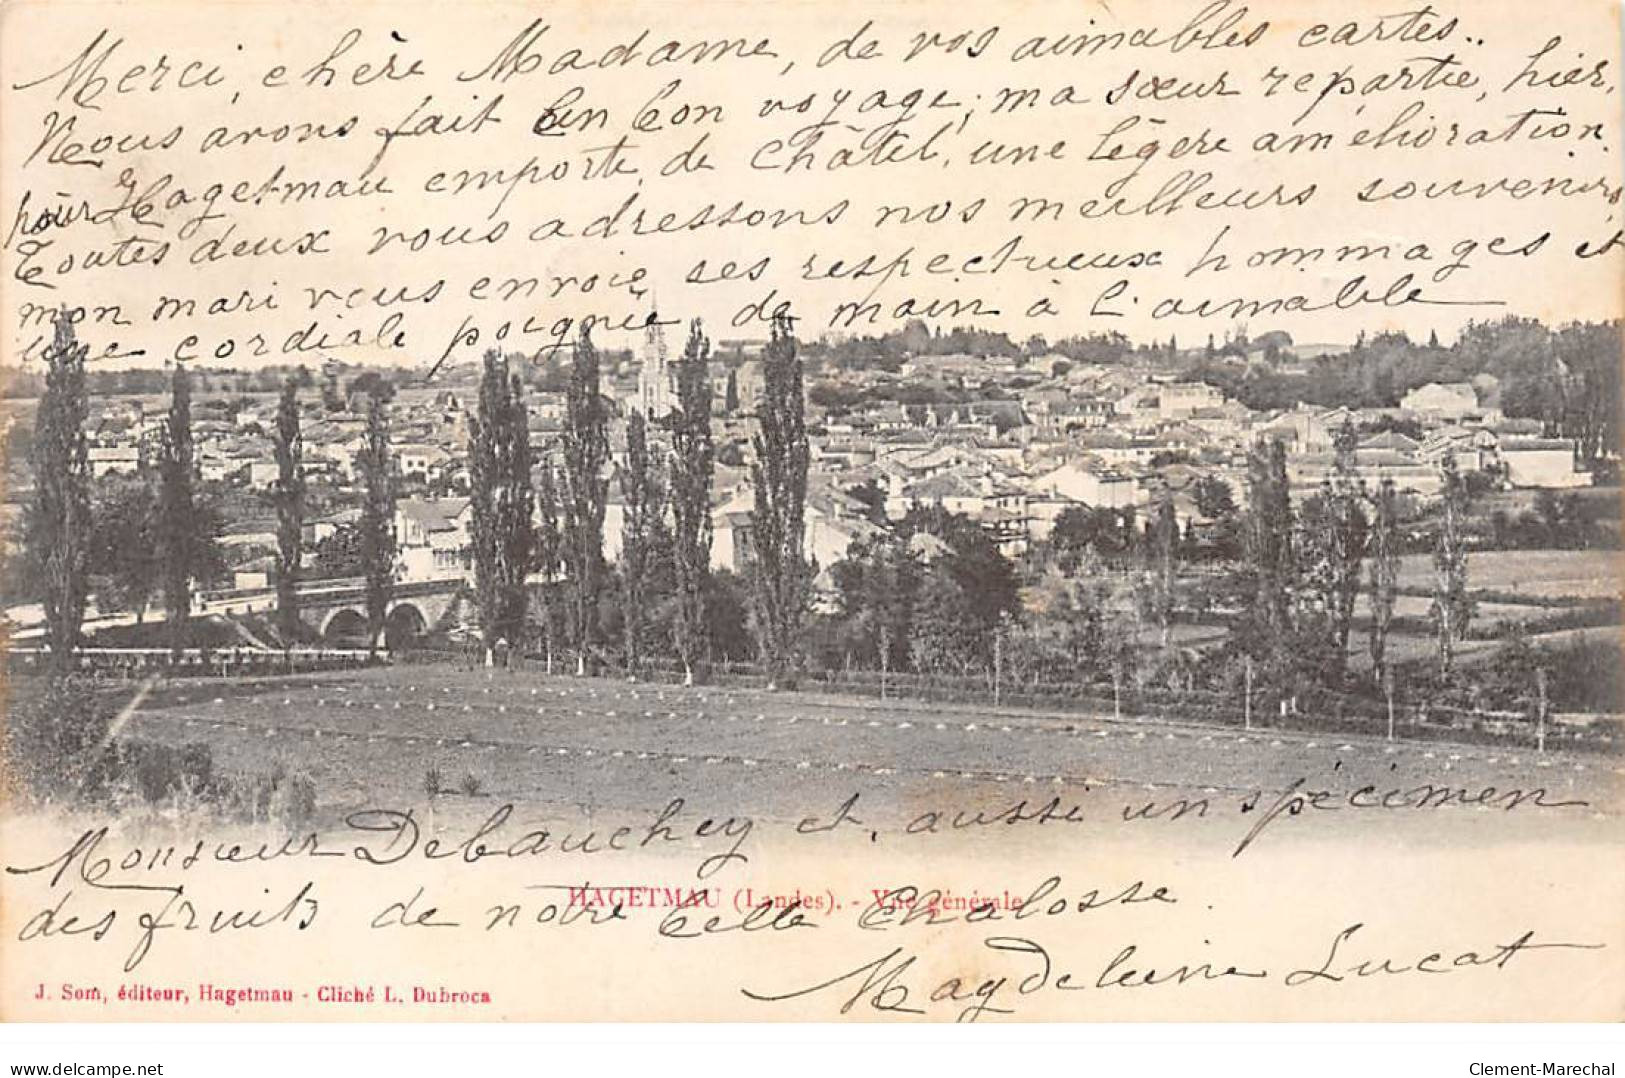 Merci, chère Madame, de vos aimables cartes..
Nous avons fait un bon voyage; ma sœur repartie, hier,
pour Hagetmau emporte, de Châtel, une légère amélioration.
Toutes deux vous adressons nos meilleurs souvenirs,
mon mari vous envoie ses respectueux hommages et
une cordiale poignée de main à l'aimable
Monsieur Debauchey et, aussi un spécimen
des fruits de notre belle Chalosse.
HAGETMAU (Landes). - Vue générale
Magdeleine Lucat
J. Som, éditeur, Hagetmau - Cliché L. Dubroca
delcampe.net
Clement-Marechal